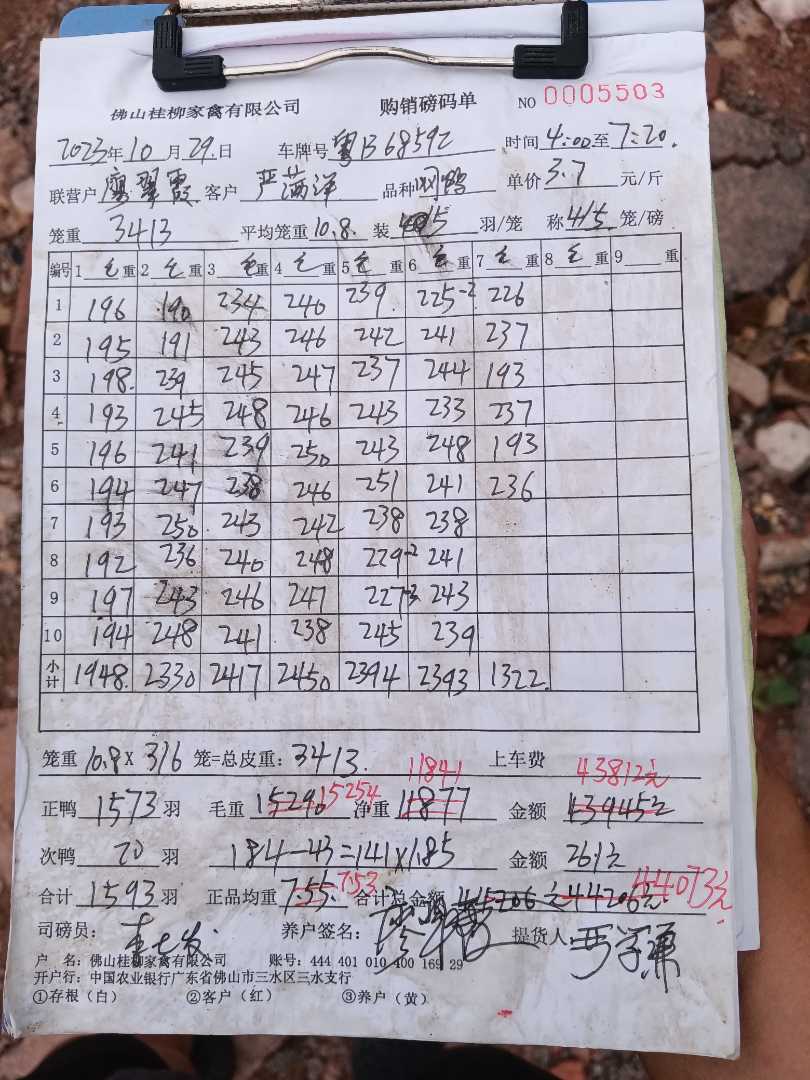 佛山桂柳家禽有限公司 购销磅码单 NO 0005503
2023年10月29日 车牌号粤B68592 时间4:00至7:20.
联营户廖翠霞 客户严满洋 品种 单价3.7元/斤
笼重3413 平均笼重10.8. 装15羽/笼 称4/5笼/磅
编号 1毛重 2毛重 3毛重 4毛重 5毛重 6毛重 7毛重 8毛重 9重
1 196 190 234 240 239. 225-2 226
2 195 191 243 246 242 241 237
3 198. 239 245 247 237 244 193
4 193 245 248 246 243 233 237
5 196 241 239 250 243 248 193
6 194 247 238 246 251 241 236
7 193 250 243 242 238 238
8 192 236 240 248 229-2 241
9 197 243 246 247 227-3 243
10 194 248 241 238 245 239
小计 1948. 2330 2417 2450 2394 2393 1322.
笼重10.8×316笼=总皮重:3413. 11841 上车费 43812元
正鸭1573羽 毛重15290 15254 净重11877 金额439452
次鸭20羽 184-43=141×1.85 金额261元
合计1593羽 正品均重7.55. 7.53 合计总金额 44206元 44073元
司磅员: 养户签名: 提货人
户 名:佛山桂柳家禽有限公司 账号:444 401 010 400 169 29
开户行:中国农业银行广东省佛山市三水区三水支行
①存根(白) ②客户(红) ③养户(黄)